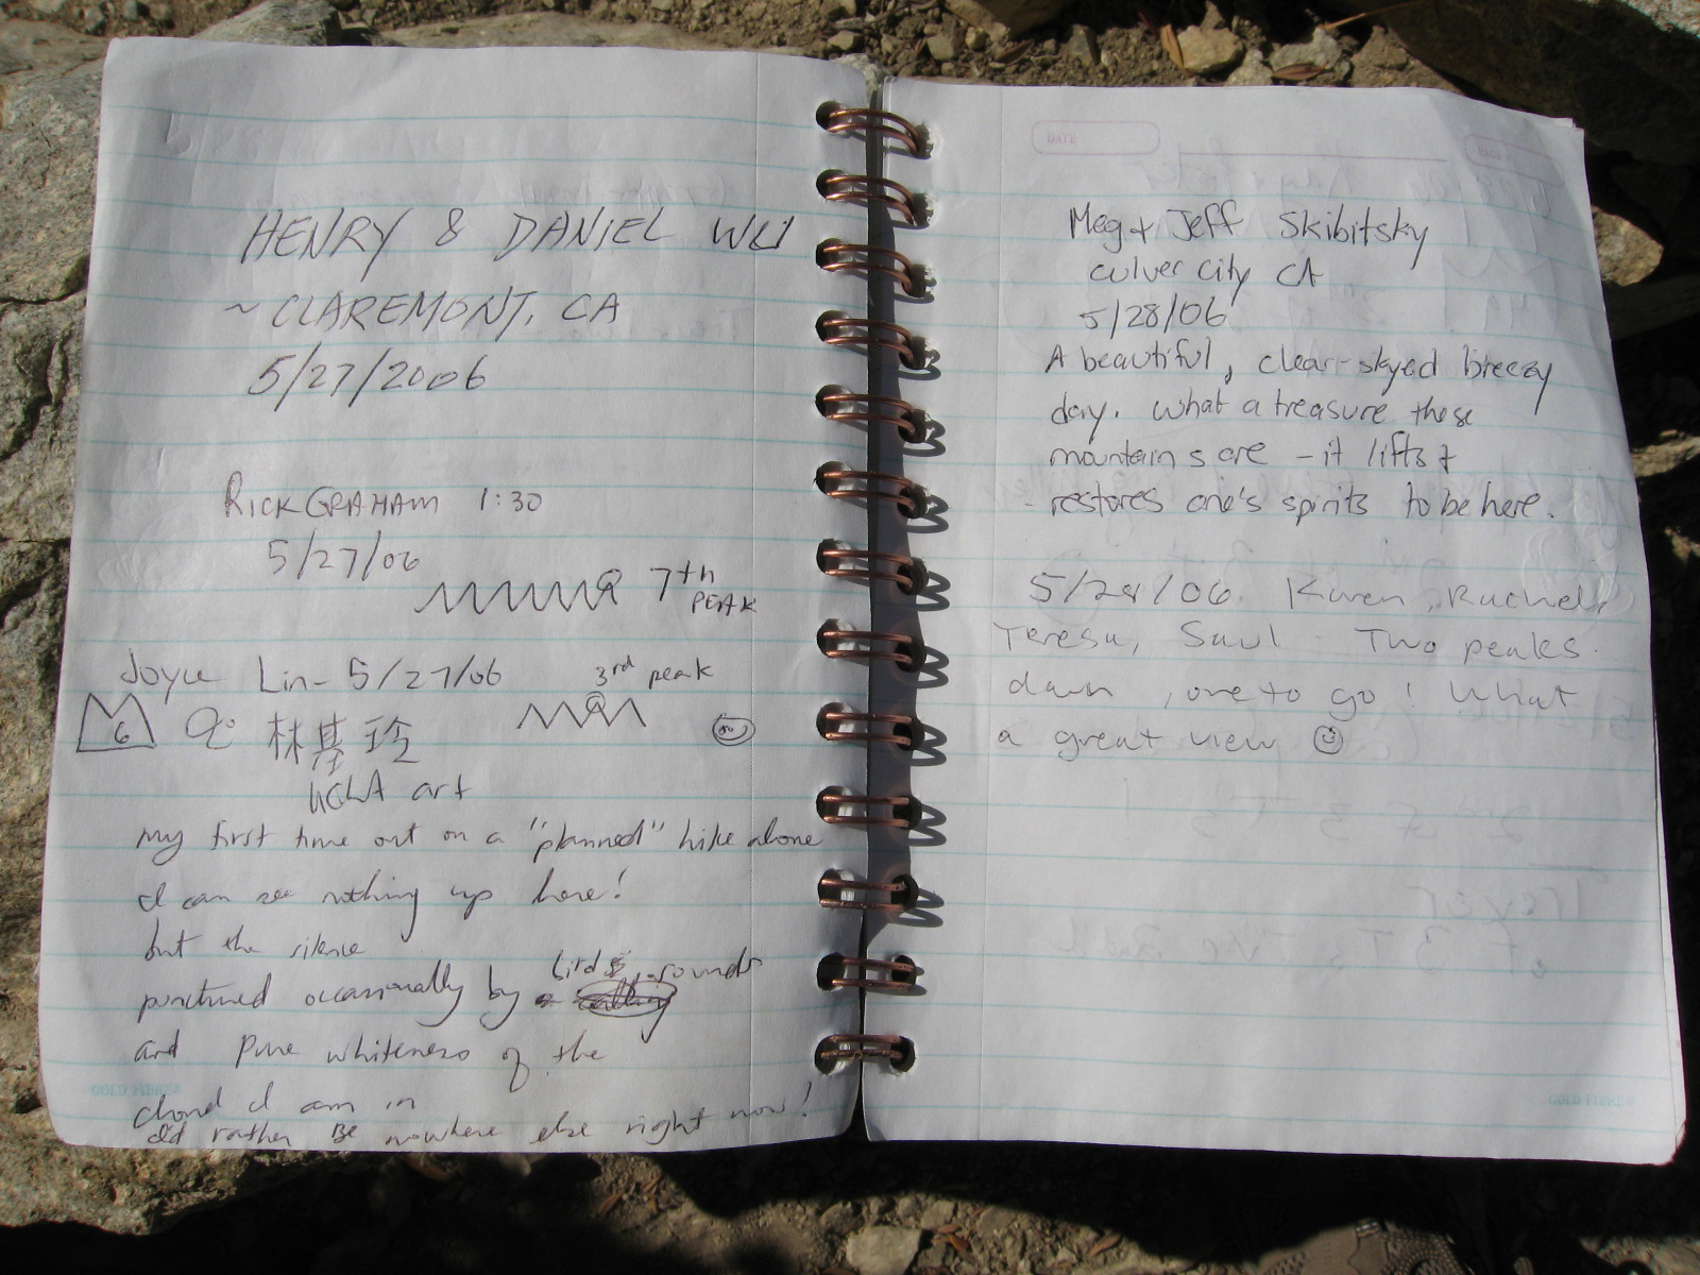 HENRY & DANIEL WU
~ CLAREMONT, CA
5/27/2006
RICK GRAHAM 1:30
5/27/06
7th
PEAK
Joyce Lin - 5/27/06
3rd peak
6
林基玲
UCLA art
my first time out on a "planned" hike alone
I can see nothing up here!
but the silence
punctured occasionally by birds sounds
and pure whiteness of the
cloud I am in
I'd rather be nowhere else right now!
GOLD
DATE
Meg + Jeff Skibitsky
Culver City CA
5/28/06
A beautiful, clear-skyed breezy
day. What a treasure these
mountains are - it lifts &
restores one's spirits to be here.
5/28/06. Karen, Rachel,
Teresa, Saul Two peaks
down, one to go! What
a great view